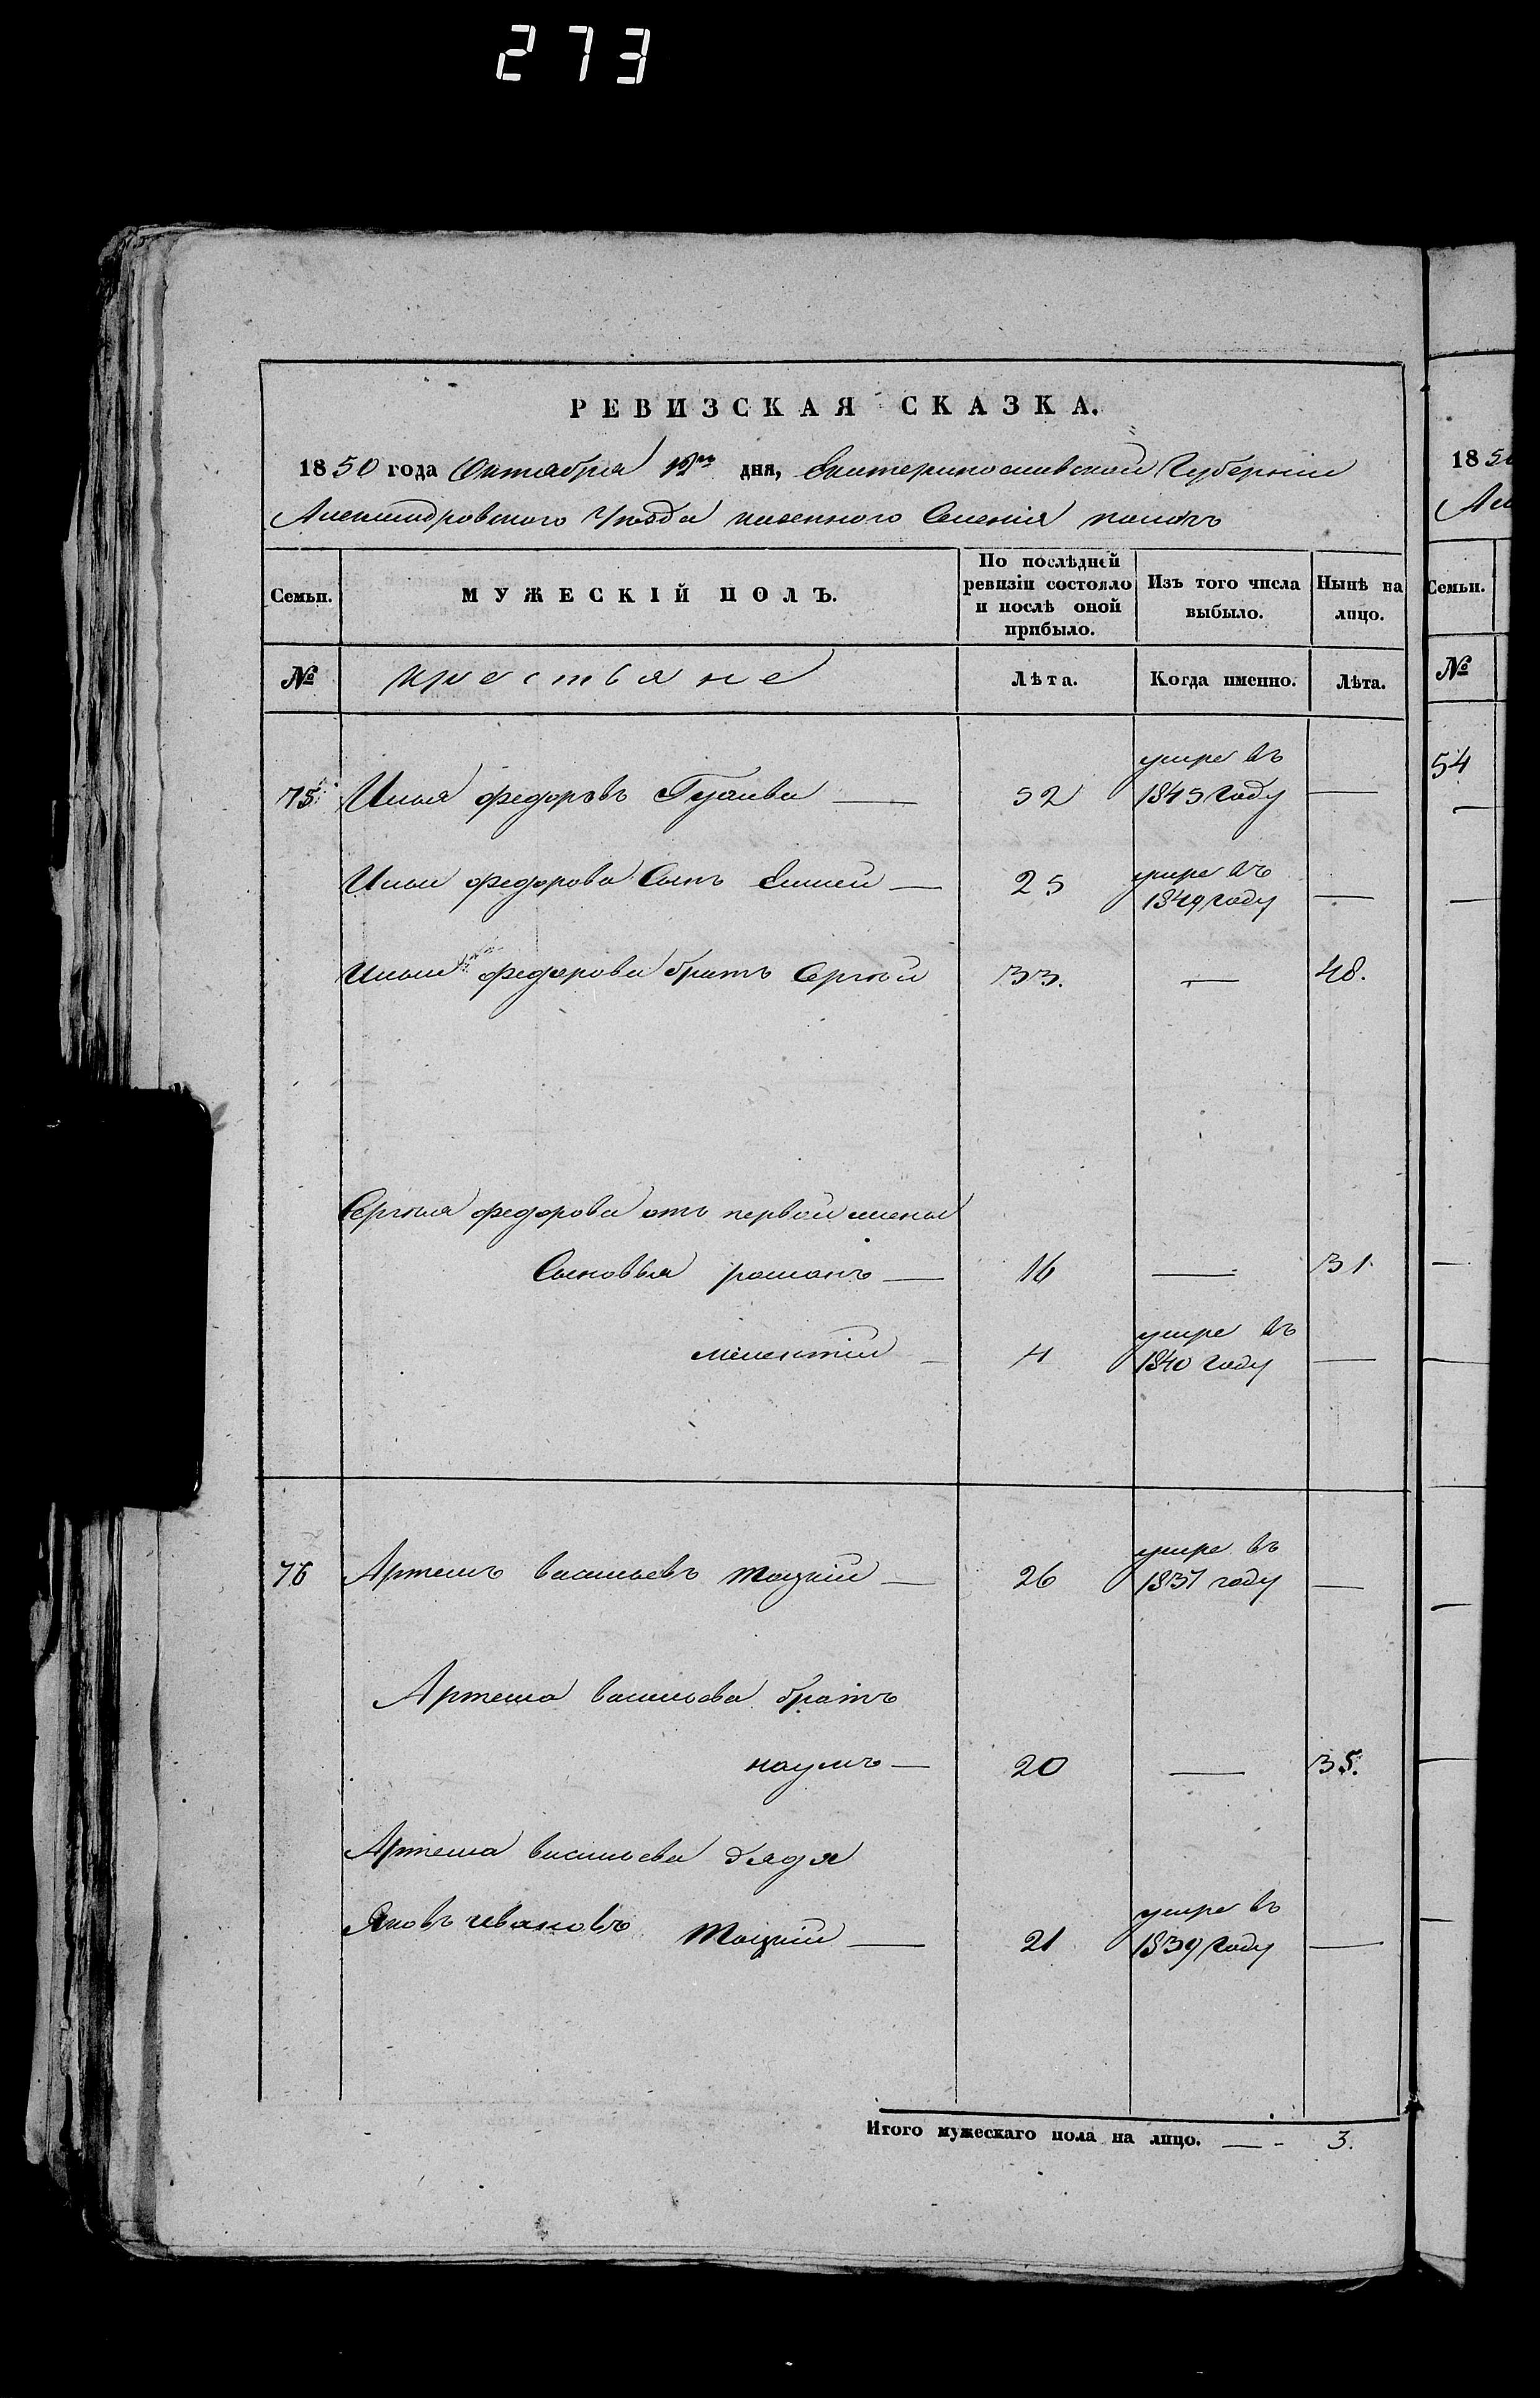 273
РЕВИЗСКАЯ СКАЗКА.
1850 года Октября 12го дня, Екатеринославской Губерніи
Александровского уѣзда казенного Селенія
Семьи.
МУЖЕСКІЙ ПОЛЪ.
По послѣдней ревизіи состояло и послѣ оной прибыло.
Изъ того числа выбыло.
Нынѣ на лицо.
№
крестьяне
Лѣта.
Когда именно.
Лѣта.
75 Илья федоровъ — 52 умре въ 1845 Году —
Ильи федорова Сынъ Елисей — 25 умре въ 1849 году —
Ильи федорова братъ Сергѣй 33. — 48.
Сергѣя федорова отъ первой жены
Сыновья романъ — 16 — 31
мелентій — 4 умре въ 1840 Году —
76 Артемъ васильевъ тоцкій — 26 умре въ 1837 году —
Артема васильева братъ
наумъ — 20 — 35.
Артема васильева дядя
Яковъ ивановъ тоцкій — 21 умре въ 1839 Году —
Итого мужескаго пола на лицо. — - 3.
185
Ал
Семьи.
№
54